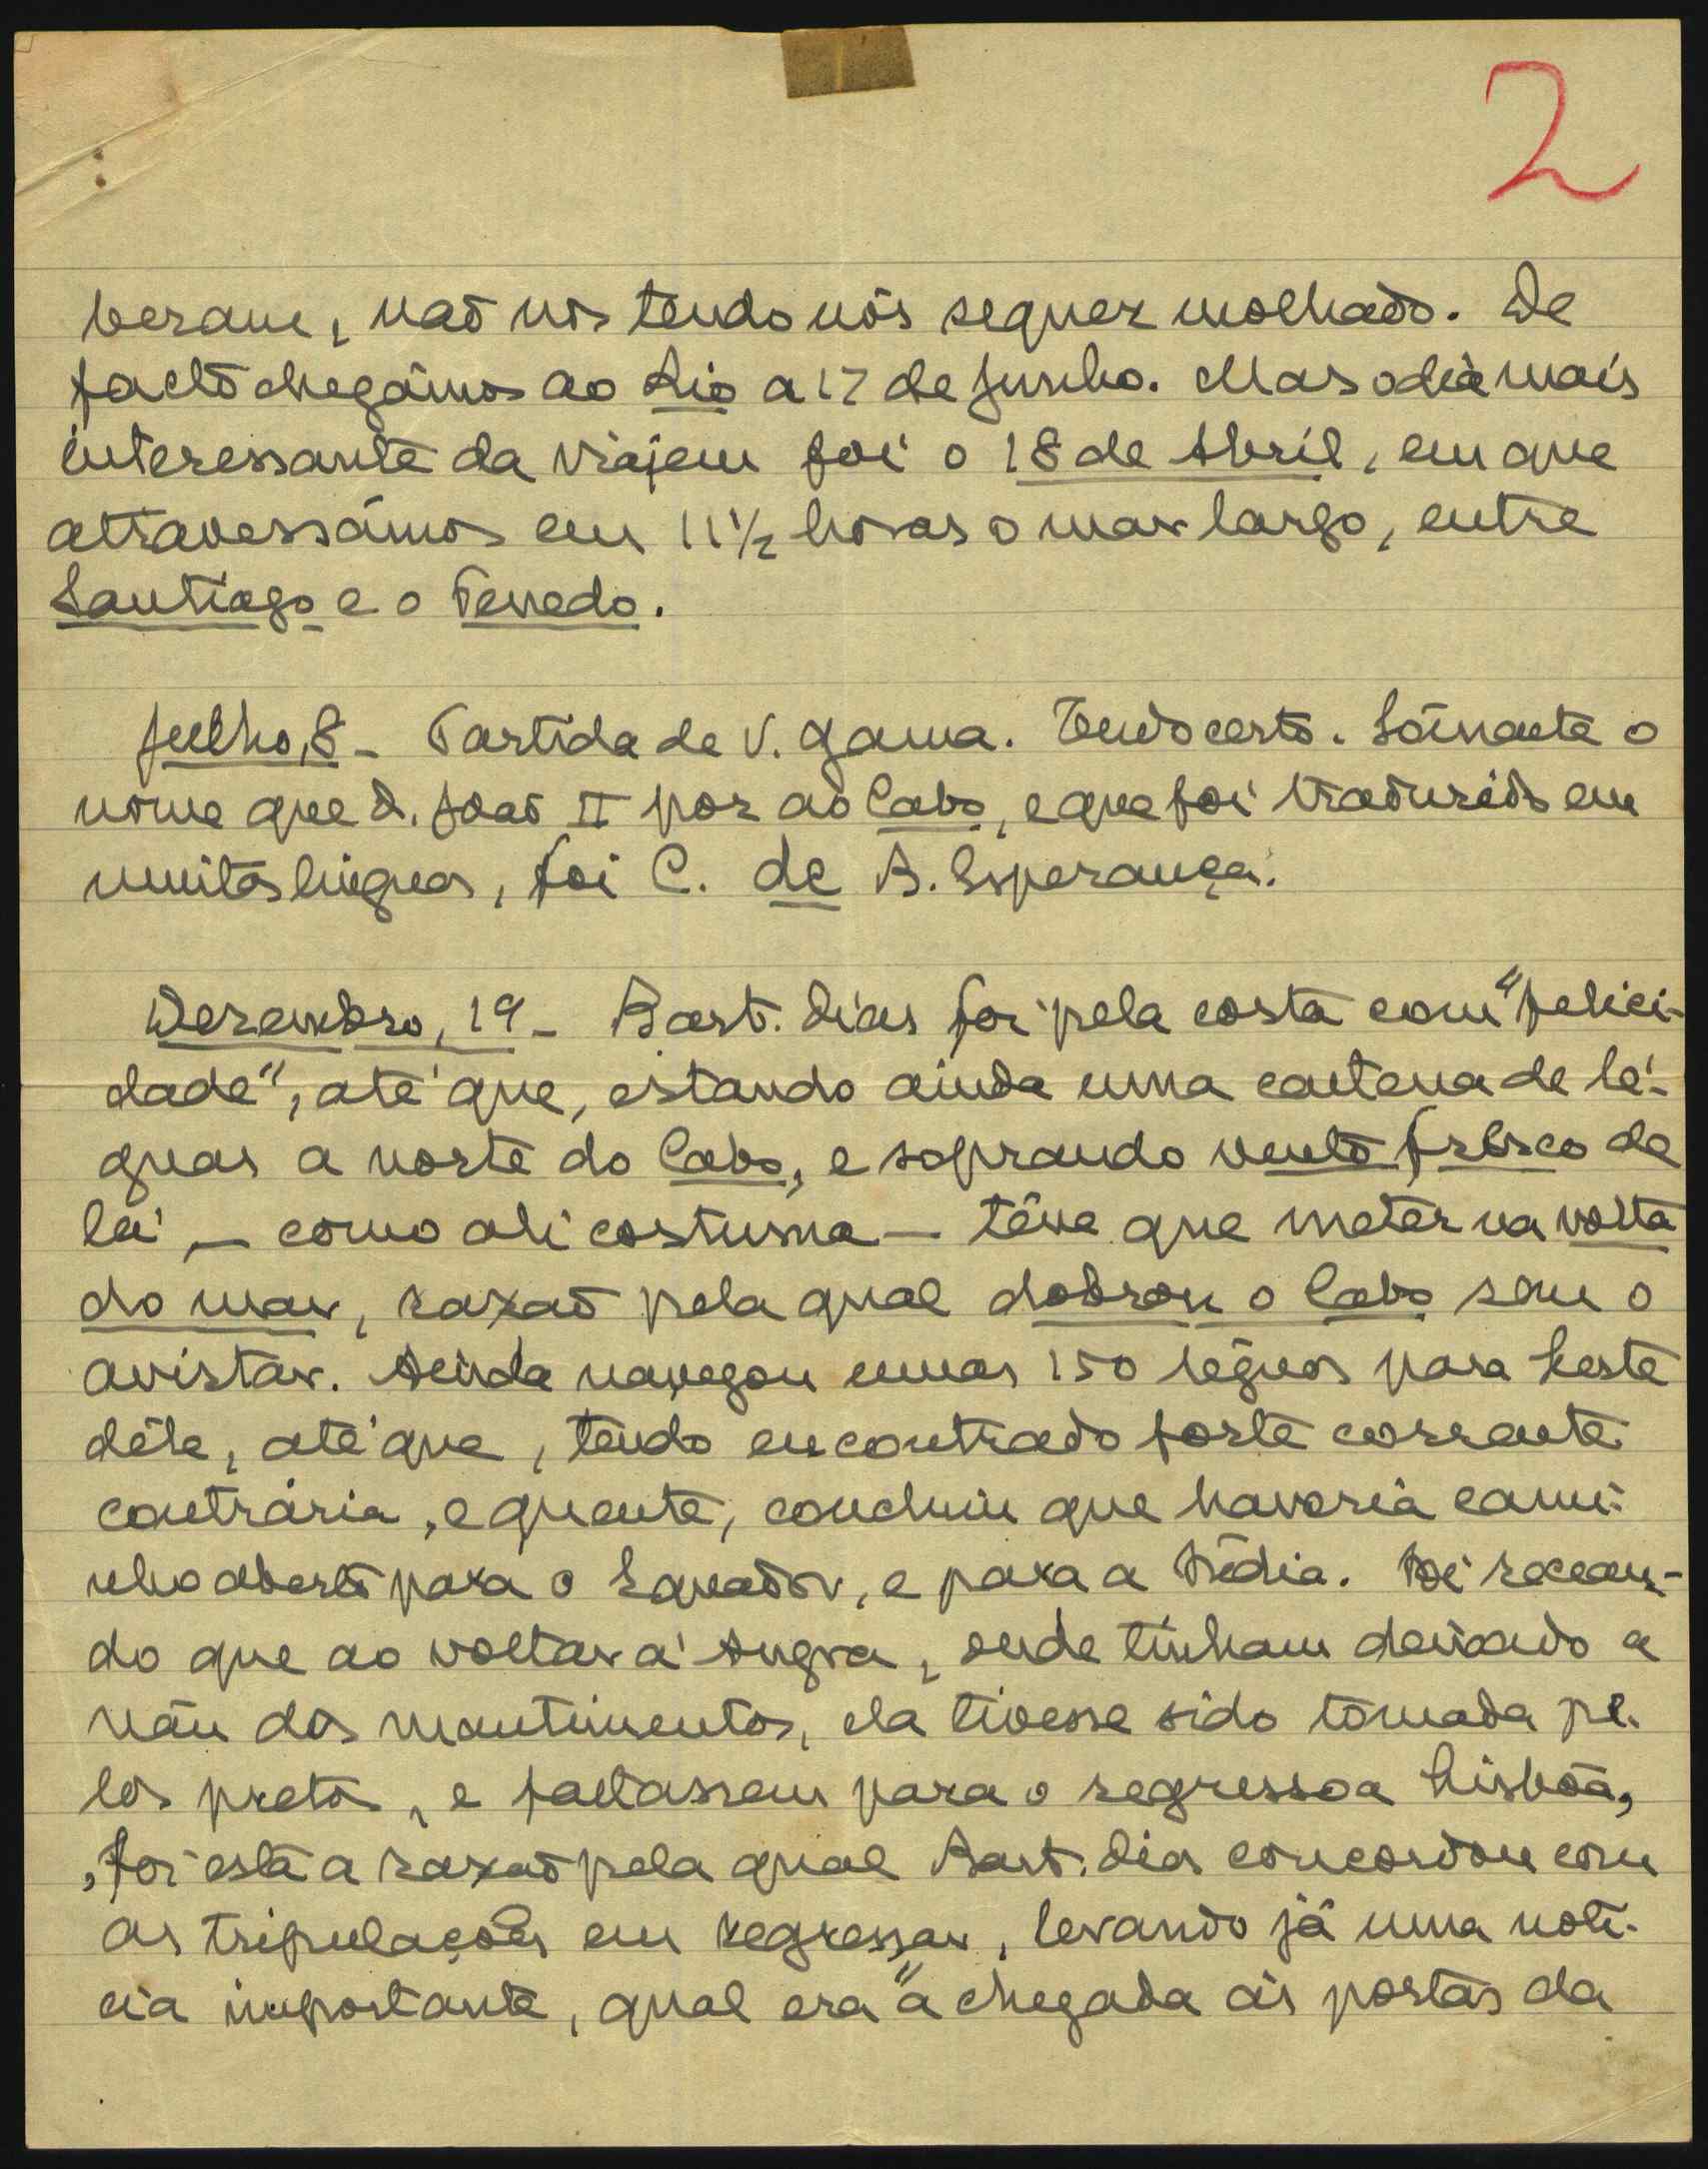 2
beram, não nos tendo nós sequer molhado. De
facto chegámos ao Rio a 17 de Junho. Mas o dia mais
interessante da viajem foi o 18 de Abril, em que
atravessámos em 11½ horas o mar largo, entre
Santiago e o Penedo.
Julho, 8 - Partida de V. Gama. Tendo certo. Sòmente o
nome que D. João II poz ao Cabo, e que foi traduzido em
muitas linguas, foi C. de B. Esperança.
Dezembro, 19 - Bart. Dias foi pela costa com "felici-
dade", até que, estando ainda uma centena de lé-
guas a norte do Cabo, e soprando vento fresco de
lá, — como ali costuma — têve que meter na volta
do mar, razão pela qual dobrou o Cabo sem o
avistar. Ainda navegou umas 150 léguas para Leste
dêle, até que, tendo encontrado forte corrente
contrária, e quente, concluiu que haveria cami-
nho aberto para o Equador, e para a Índia. Foi recean-
do que ao voltar á Angra, onde tinham deixado a
náu dos mantimentos, ela tivesse sido tomada pe-
los pretos, e faltassem para o regresso a Lisbôa,
, foi esta a razão pela qual Bart. Dias concordou com
as tripulações em regressar, levando já uma noti-
cia importante, qual era "a chegada ás portas da